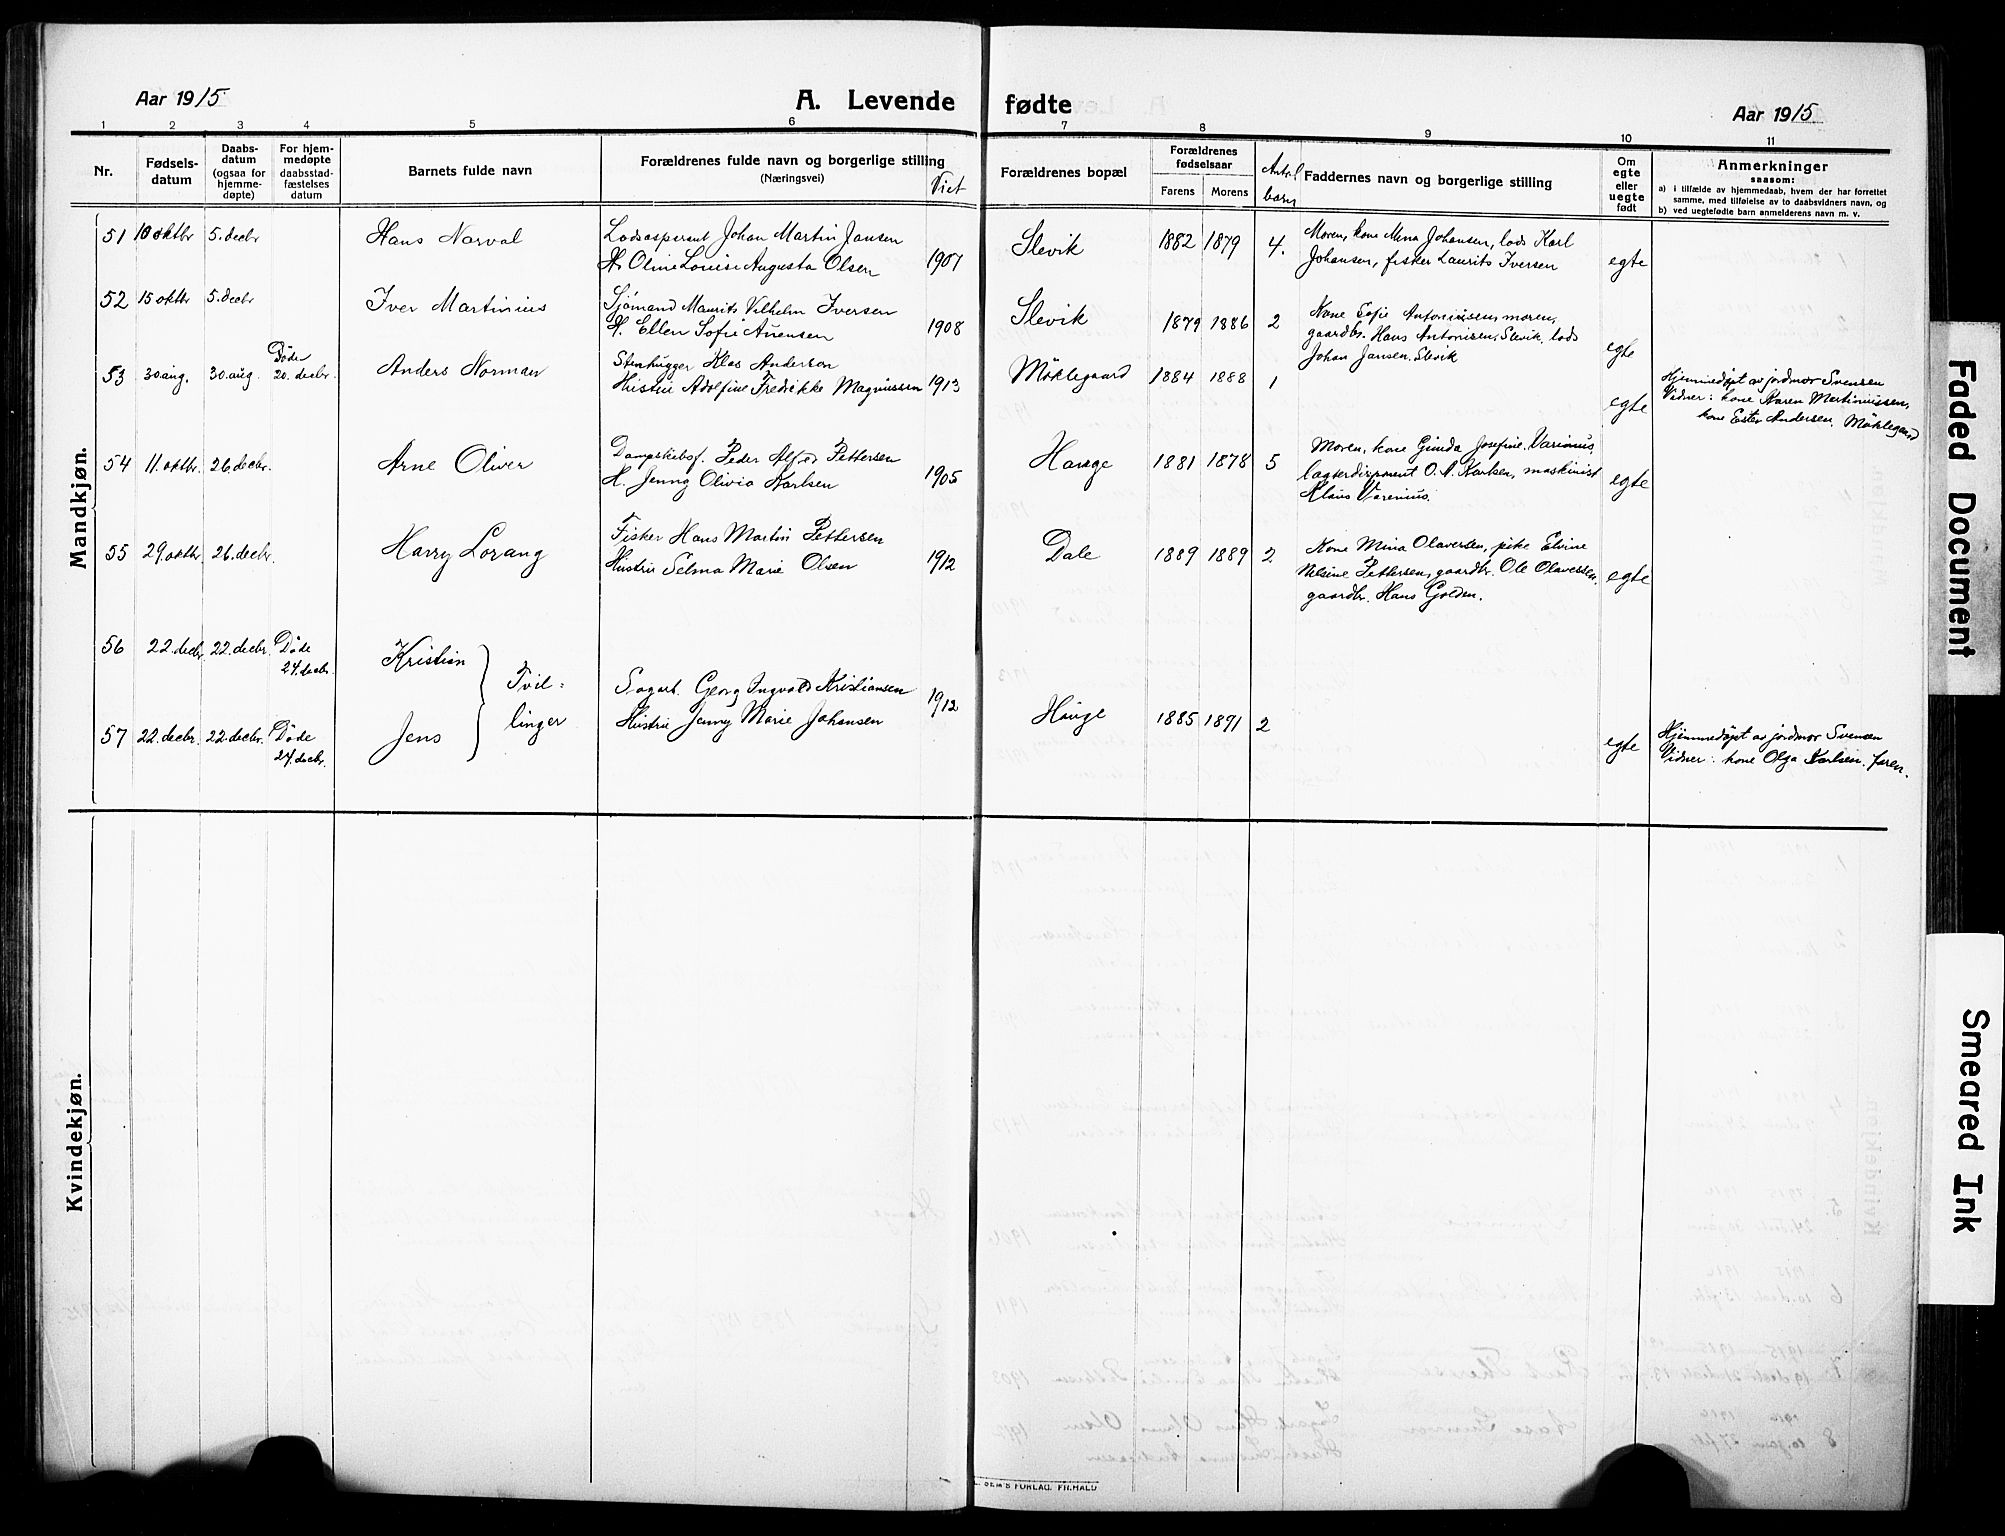 Aar 1915. A. Levende fødte Aar 1915
1 2 3 4 5 6 7 8 9 10 11
Nr.
Fødsels-
datum
Daabs-
datum
(ogsaa for
hjemme-
døpte)
For hjem-
medøpte
daabsstad-
fæstelses
datum
Barnets fulde navn
Forældrenes fulde navn og borgerlige stilling
(Næringsvei)
Viet
Forældrenes bopæl
Forældrenes
fødselsaar
Farens Morens
Antal
barn
Faddernes navn og borgerlige stilling
Om
egte
eller
uegte
født
Anmerkninger
saasom:
a) i tilfælde av hjemmedaab, hvem der har forrettet
samme, med tilføielse av to daabsvidners navn, og
b) ved uegtefødte barn anmelderens navn m. v.
Mandkjøn.
51 10 oktbr 5. decbr Hans Narval
Lodsaspirant Johan Martin Jansen
H. Oline Louise Augusta Olsen 1907
Slevik 1882 1879 4.
Moren, kone Mina Johansen, lods Karl
Johansen, fisker Laurits Iversen
egte
52 15 oktbr 5. decbr Iver Martinius
Sjømand Maurits Vilhelm Iversen
H. Ellen Sofie Auensen 1908
Slevik 1879 1886 2
Kone Sofie Antonissen, moren,
gaardbr. Hans Antonisen, Slevik, lods
Johan Jansen. Slevik
egte
53 30 aug. 30. aug. Døde
20. decbr. Anders Norman
Stenhugger Klas Anderson
Hustru Adolfine Fredrikke Magnussen 1913
Møklegaard 1884 1888 1
egte
Hjemmedøpt av jordmor Svensen
Vidner: kone Karen Martinussen,
kone Ester Andersen. Møklegaard
54 11. oktbr. 26. decbr. Arne Oliver
Dampskibsf. Peder Alfred Pettersen
H. Jenny Olivia Karlsen 1905
Hauge 1881 1878 5
Moren, kone Gunda Josefine Varenius,
lagterdisponent O. A. Karlsen, maskinist
Klaus Varenius.
egte
55 29. oktbr. 26. decbr. Harry Lorang
Fisker Hans Martin Pettersen
Hustru Selma Marie Olsen 1912
Dale 1889 1889 2
Kone Mina Olaversen, pike Elvine
Nelsine Pettersen, gaardbr. Ole Olavessen,
gaardbr. Hans Golden.
egte
56 22. decbr. 22. decbr. Døde
24. decbr. Kristian
Tvil=
linger
Sagarb. Georg Ingvald Kristiansen
Hustru Jenny Marie Johansen 1912
57 22. decbr. 22. decbr. Døde
24. decbr. Jens
Hauge 1885 1891 2
egte
Hjemmedøpt av jordmor Svensen
Vidner: kone Olga Karlsen, faren.
Kvindekjøn.
SEM'S FORLAG. FR.HALD
Faded Document
Smeared Ink